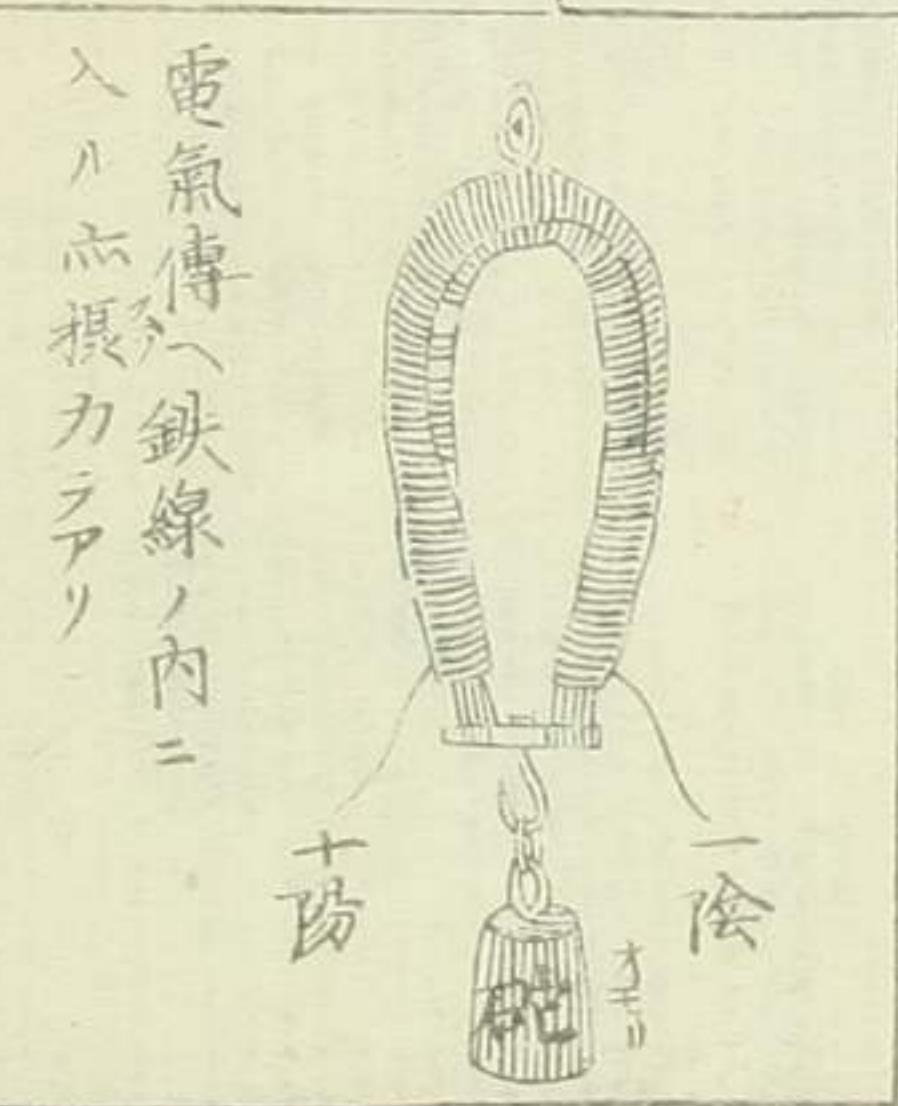 電氣傳ヘ鉄線ノ内ニ
入ルホ摂力ラアリ
一陰
十陽
オモリ